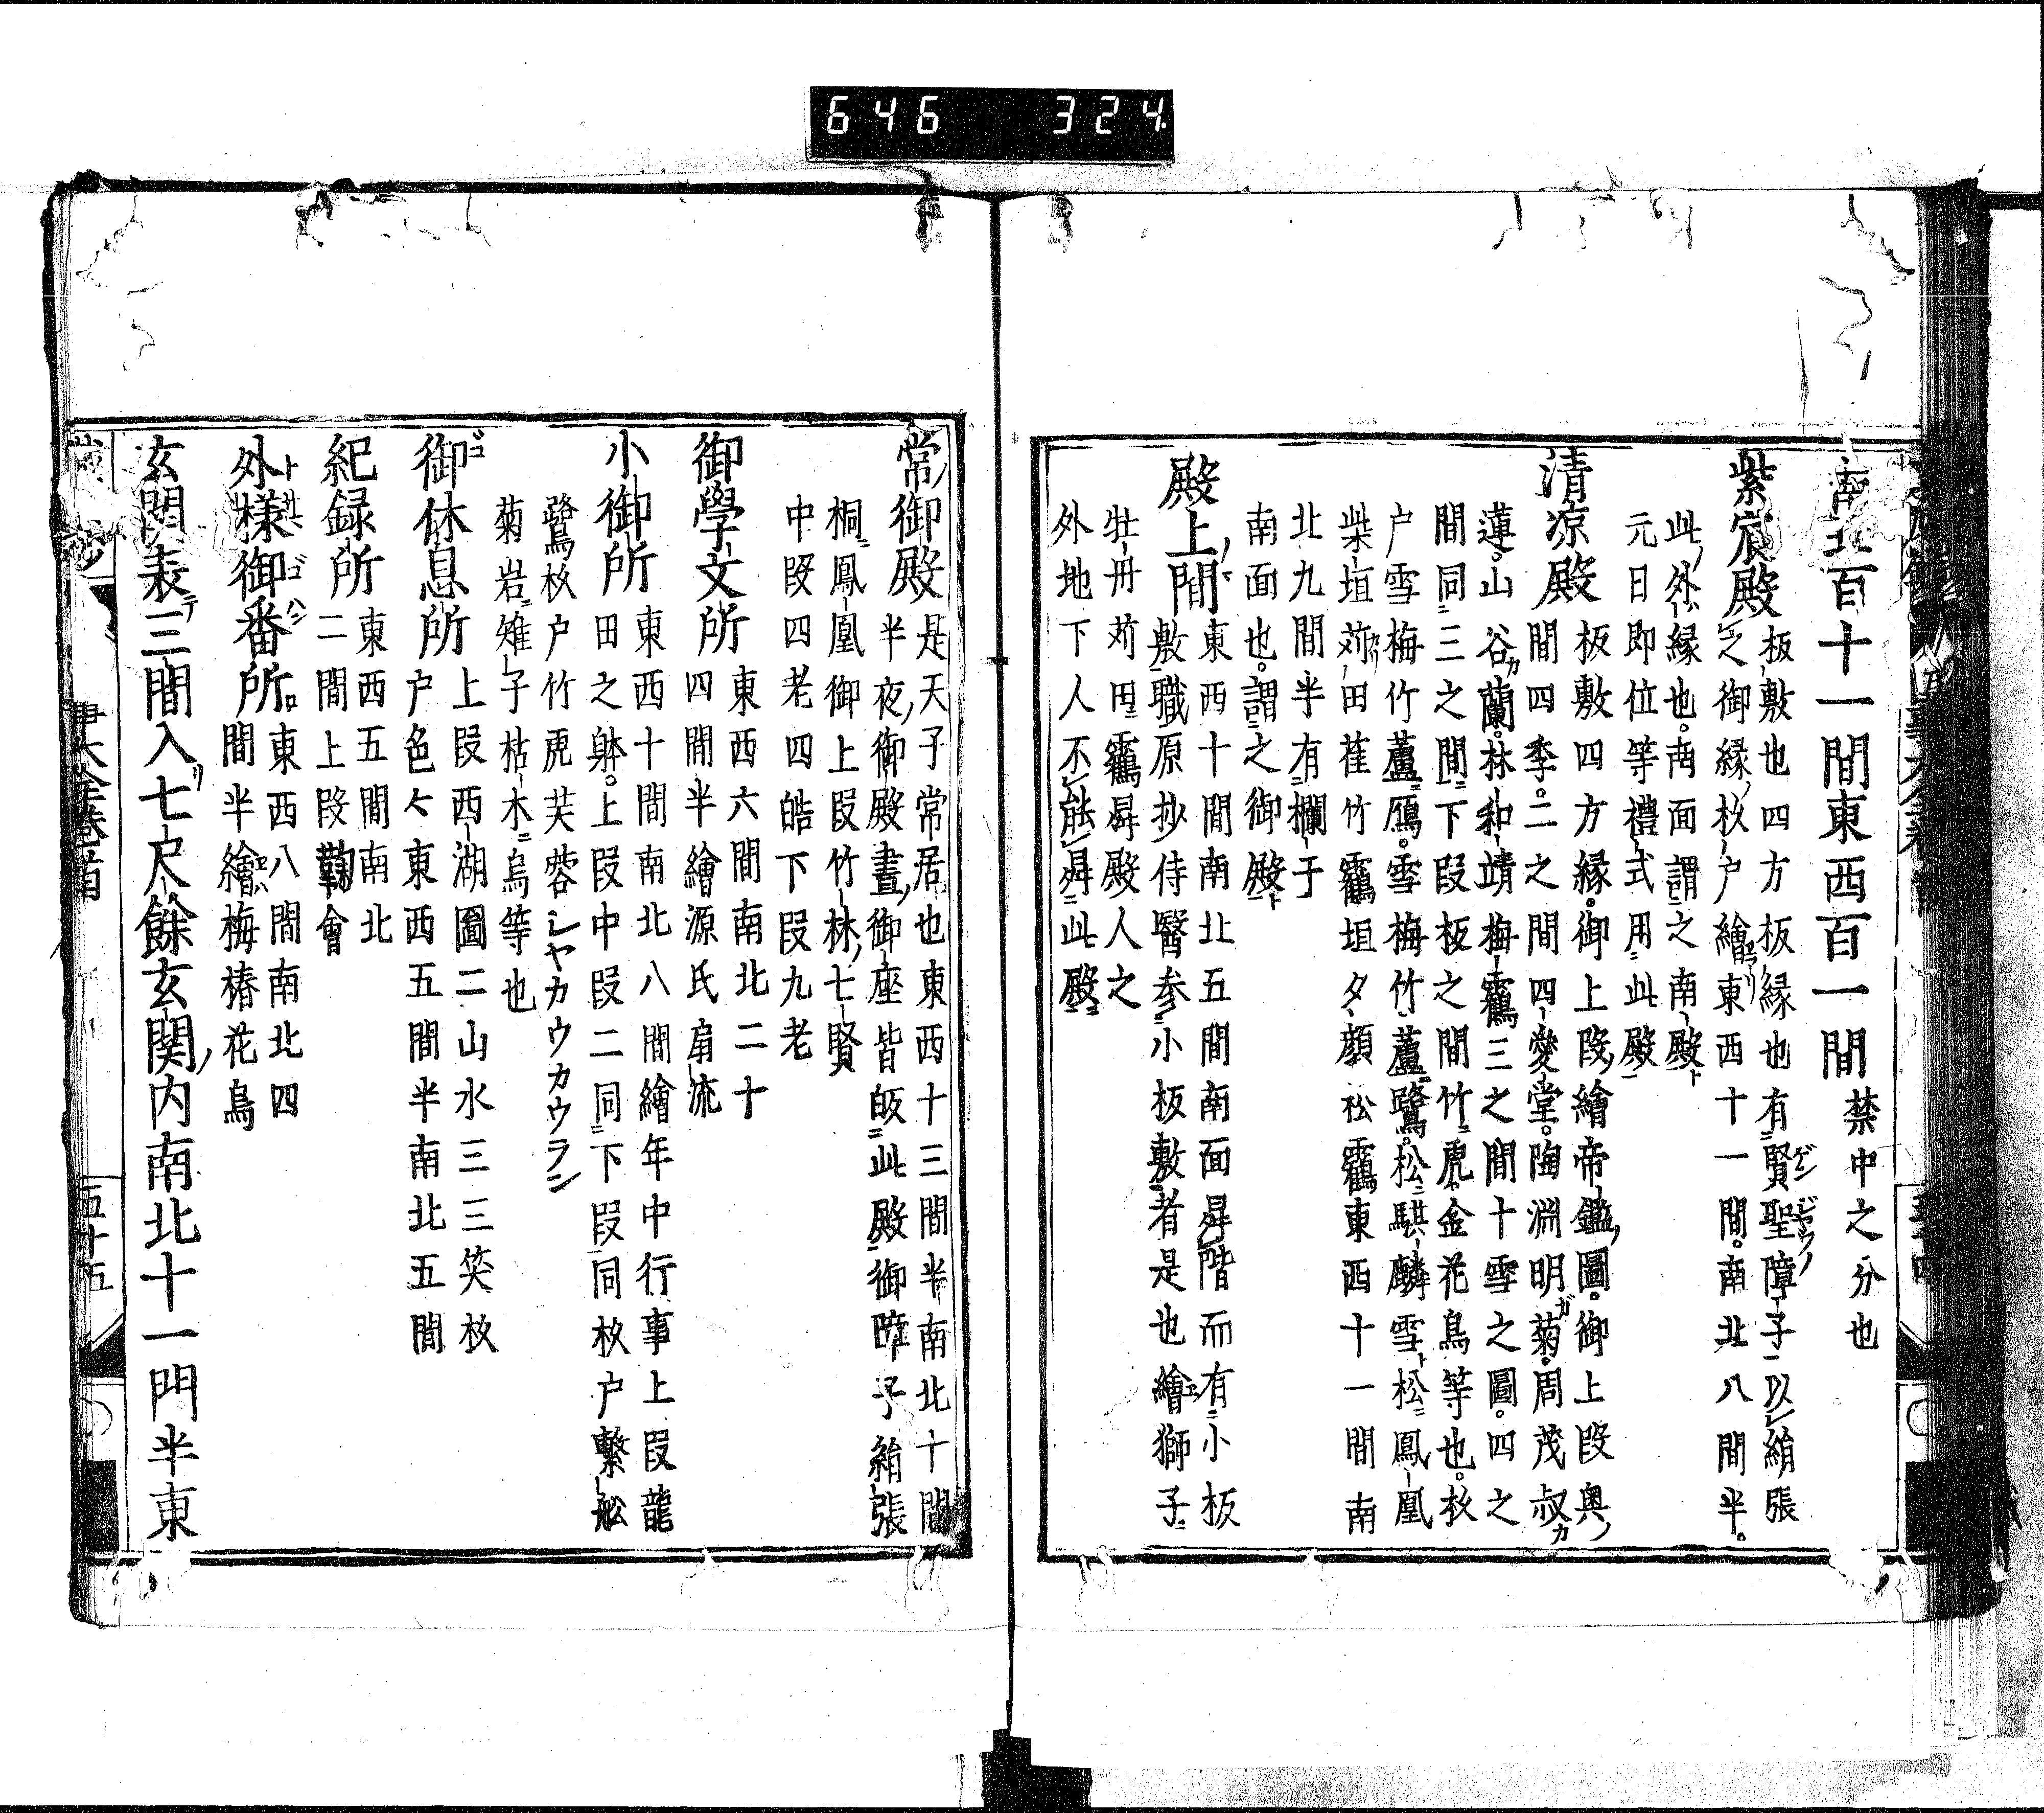 646 324
南北百十一間東西百一間 禁中之分也
紫宸殿 板敷也四方板縁也有賢聖障子以絹張
之御縁枚戸繪東西十一間南北八間半
此外縁也南面謂之南殿
元日即位等禮式用此殿
清凉殿 板敷四方縁御上段繪帝鑑圖御上段奥
間四季二之間四愛堂陶淵明菊周茂叔
蓮山谷蘭林和靖梅靏三之間十雪之圖四之
間同三之間下段板之間竹虎金花鳥等也枚
戸雪梅竹蘆鴈雪梅竹蘆鷺松騏麟雪松鳳凰
柴垣苅田萑竹靏垣夕顔松靏東西十一間南
北九間半有欄于
南面也謂之御殿
殿上間 東西十間南北五間南面舁階而有小板
敷職原抄侍醫参小板敷者是也繪獅子
牡丹苅田靏舁殿人之
外地下人不能舁此殿
常御殿 是天子常居也東西十三間半南北十間
半夜御殿晝御座皆皈此殿御障子絹張
桐鳳凰御上段竹林七賢
中段四老四皓下段九老
御學文所 東西六間南北二十
四間半繪源氏扇流
小御所 東西十間南北八間繪年中行事上段龍
田之躰上段中段二同下段同枚戸繋舩
鷺枚戸竹虎芙蓉シヤカウカウラン
菊岩雉子枯木烏等也
御休息所 上段西湖圖二山水三三笑枚
戸色々東西五間半南北五間
紀録所 東西五間南北
二間上段鞠會
外様御番所 東西八間南北四
間半繪梅椿花鳥
玄関表三間入七尺餘玄関内南北十一門半東
五十五